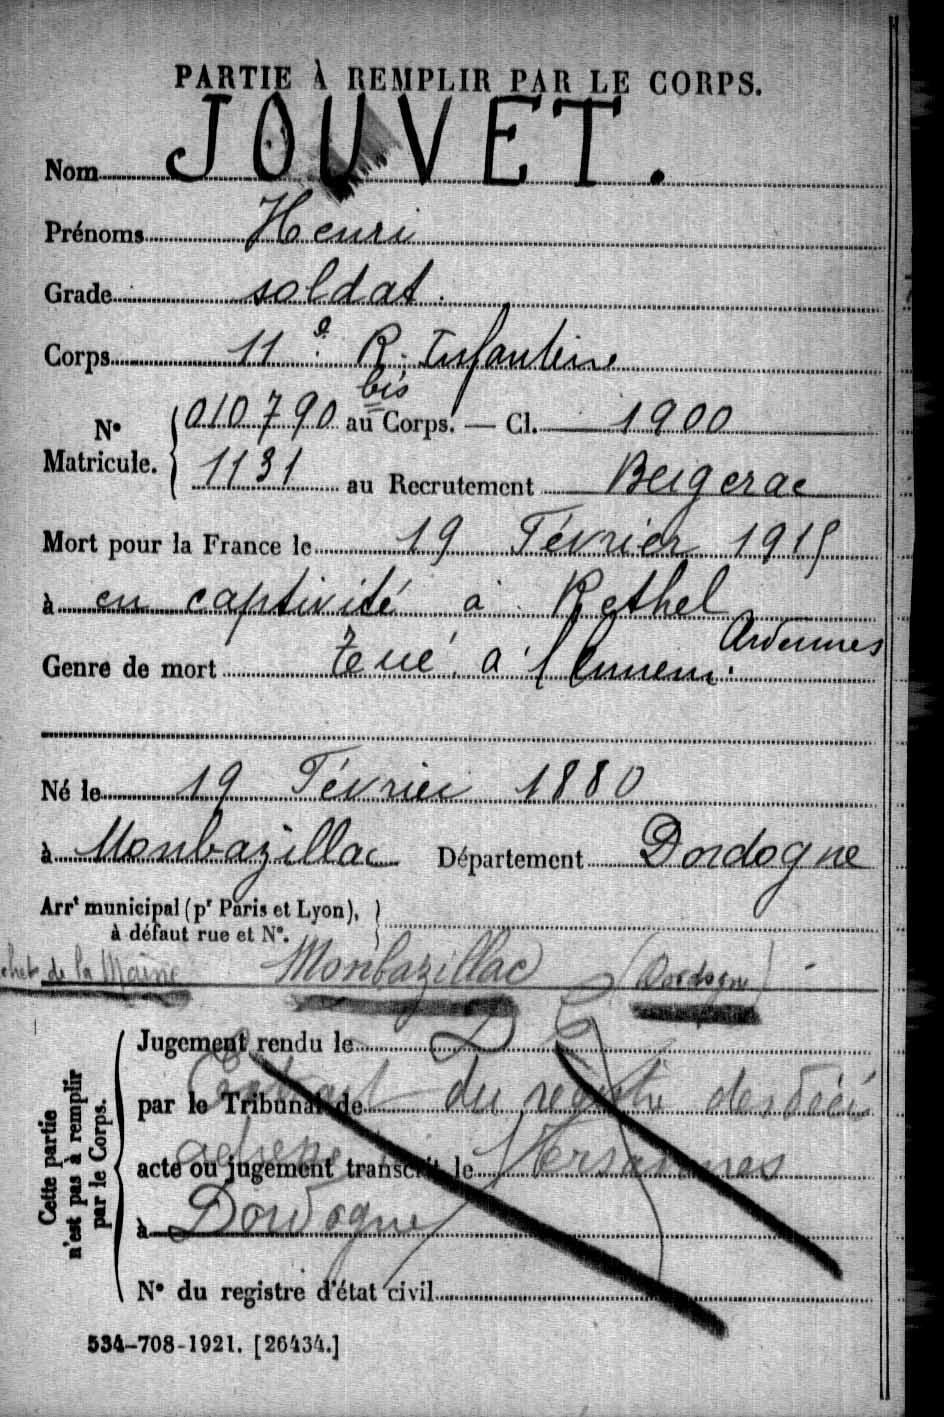 PARTIE À REMPLIR PAR LE CORPS.
Nom JOUVET.
Prénoms Henri
Grade soldat.
Corps 11e R. Infanterie
bis
N° Matricule. { 010790 au Corps. — Cl. 1900
1131 au Recrutement Bergerac
Mort pour la France le 19 Février 1915
à en captivité à Rethel
Ardennes
Genre de mort Tué à l'Ennemi.
Né le 19 Février 1880
à Monbazillac Département Dordogne
Arrt municipal (pr Paris et Lyon), }
à défaut rue et N°.
de la Mairie Monbazillac (Dordogne) -
Cette partie n'est pas à remplir par le Corps.
Jugement rendu le
par le Tribunal de
Extrait du registre des décès
acte ou jugement transcrit le
adressé
à Dordogne
N° du registre d'état civil
534-708-1921. [26434.]